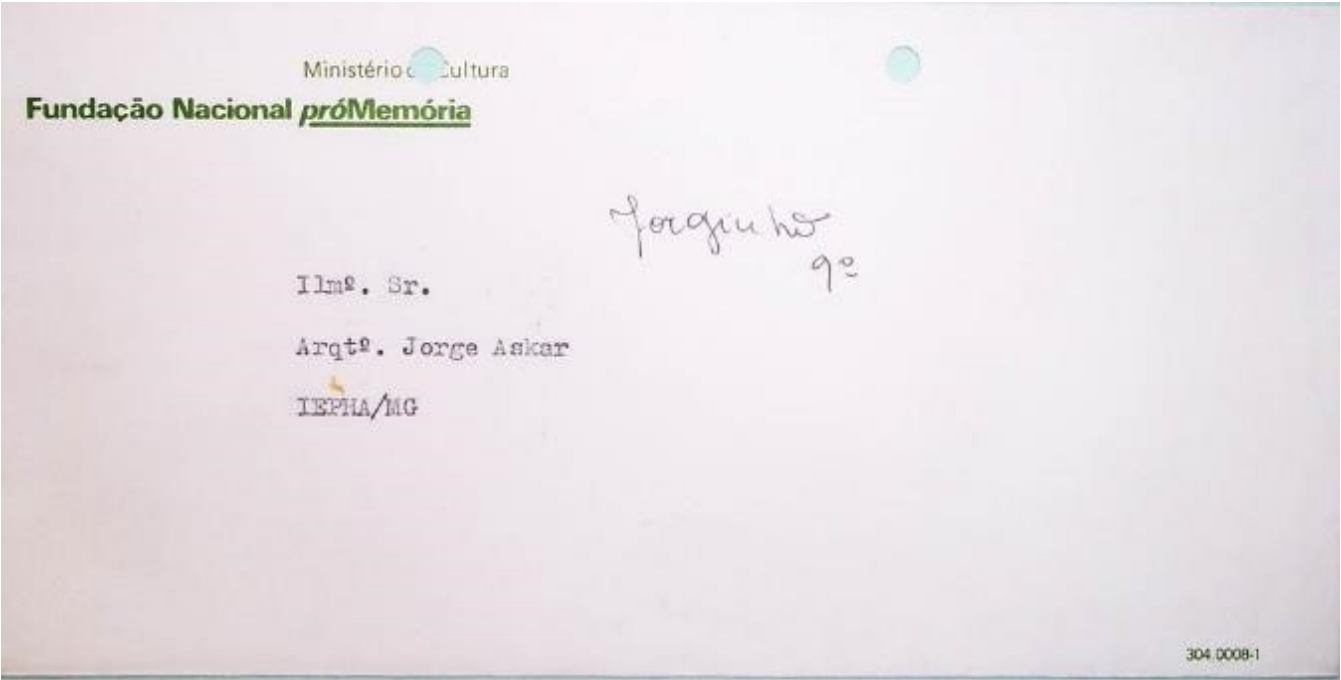 Ministério da Cultura
Fundação Nacional próMemória
Jorginho
9º
Ilmº. Sr.
Arqtº. Jorge Askar
IEPHA/MG
304.0008-1